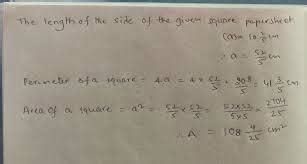 The length of the side of the given square papersheet
(a) = 10 2/5 cm
∴ a = 52/5 cm
Perimeter of a square = 4a = 4 × 52/5 = 208/5 = 41 3/5 cm
Area of a square = a² = 52/5 × 52/5 = 52×52/5×5 = 2704/25
∴ A = 108 4/25 cm²